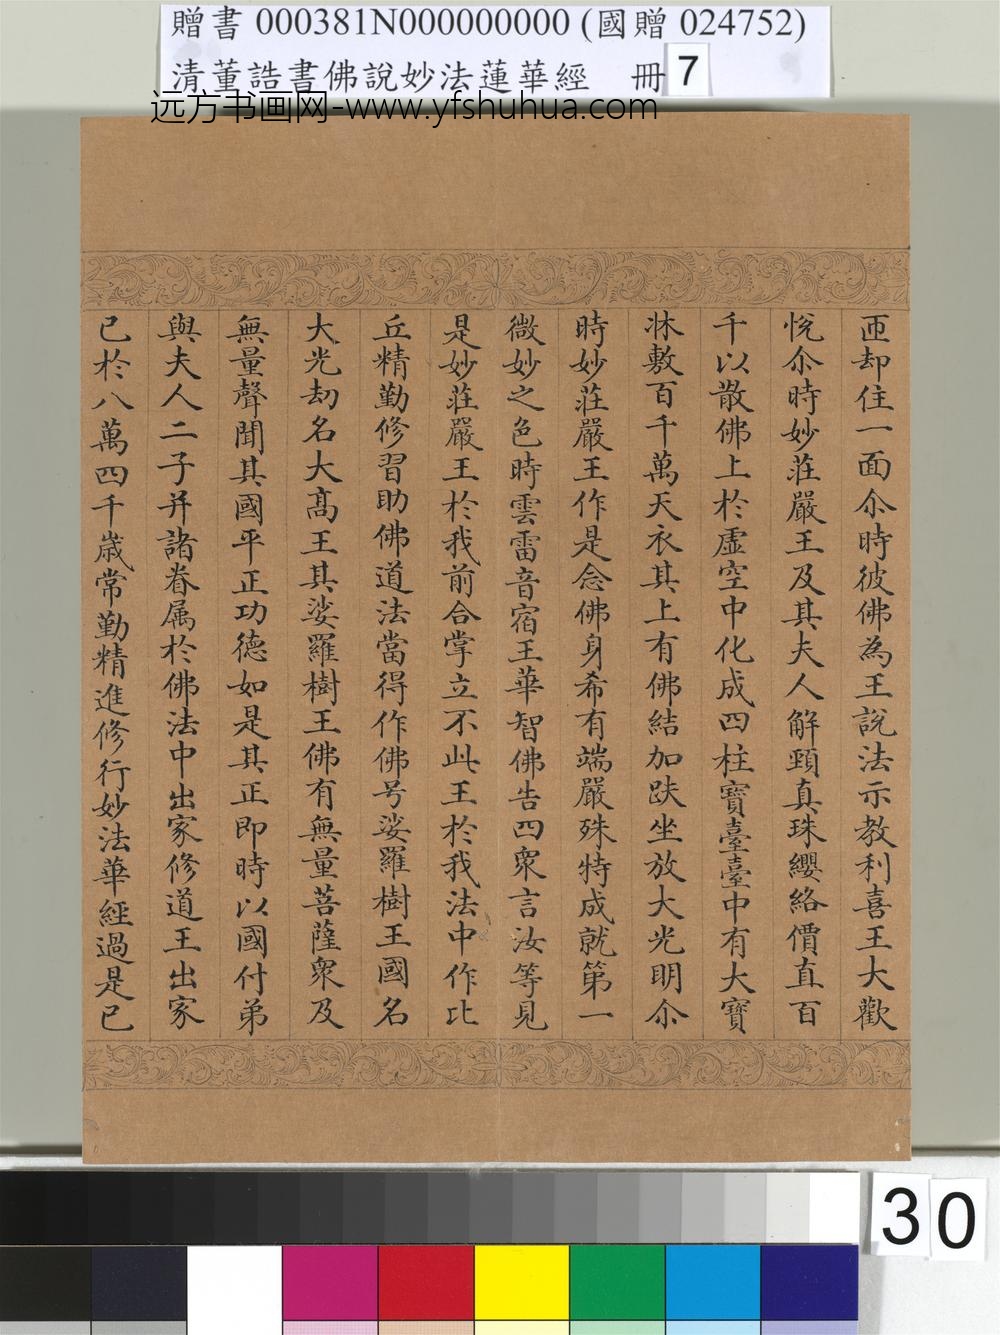 贈書 000381N000000000 (國贈 024752)
清董誥書佛說妙法蓮華經 冊 7
远方书画网-www.yfshuhua.com
匝却住一面尒時彼佛為王說法示教利喜王大歡
悅尒時妙莊嚴王及其夫人解頸真珠纓絡價直百
千以散佛上於虛空中化成四柱寶臺臺中有大寶
牀敷百千萬天衣其上有佛結加趺坐放大光明尒
時妙莊嚴王作是念佛身希有端嚴殊特成就第一
微妙之色時雲雷音宿王華智佛告四衆言汝等見
是妙莊嚴王於我前合掌立不此王於我法中作比
丘精勤修習助佛道法當得作佛号娑羅樹王國名
大光劫名大髙王其娑羅樹王佛有無量菩薩衆及
無量聲聞其國平正功德如是其正即時以國付弟
與夫人二子并諸眷属於佛法中出家修道王出家
已於八萬四千歲常勤精進修行妙法華經過是已
30